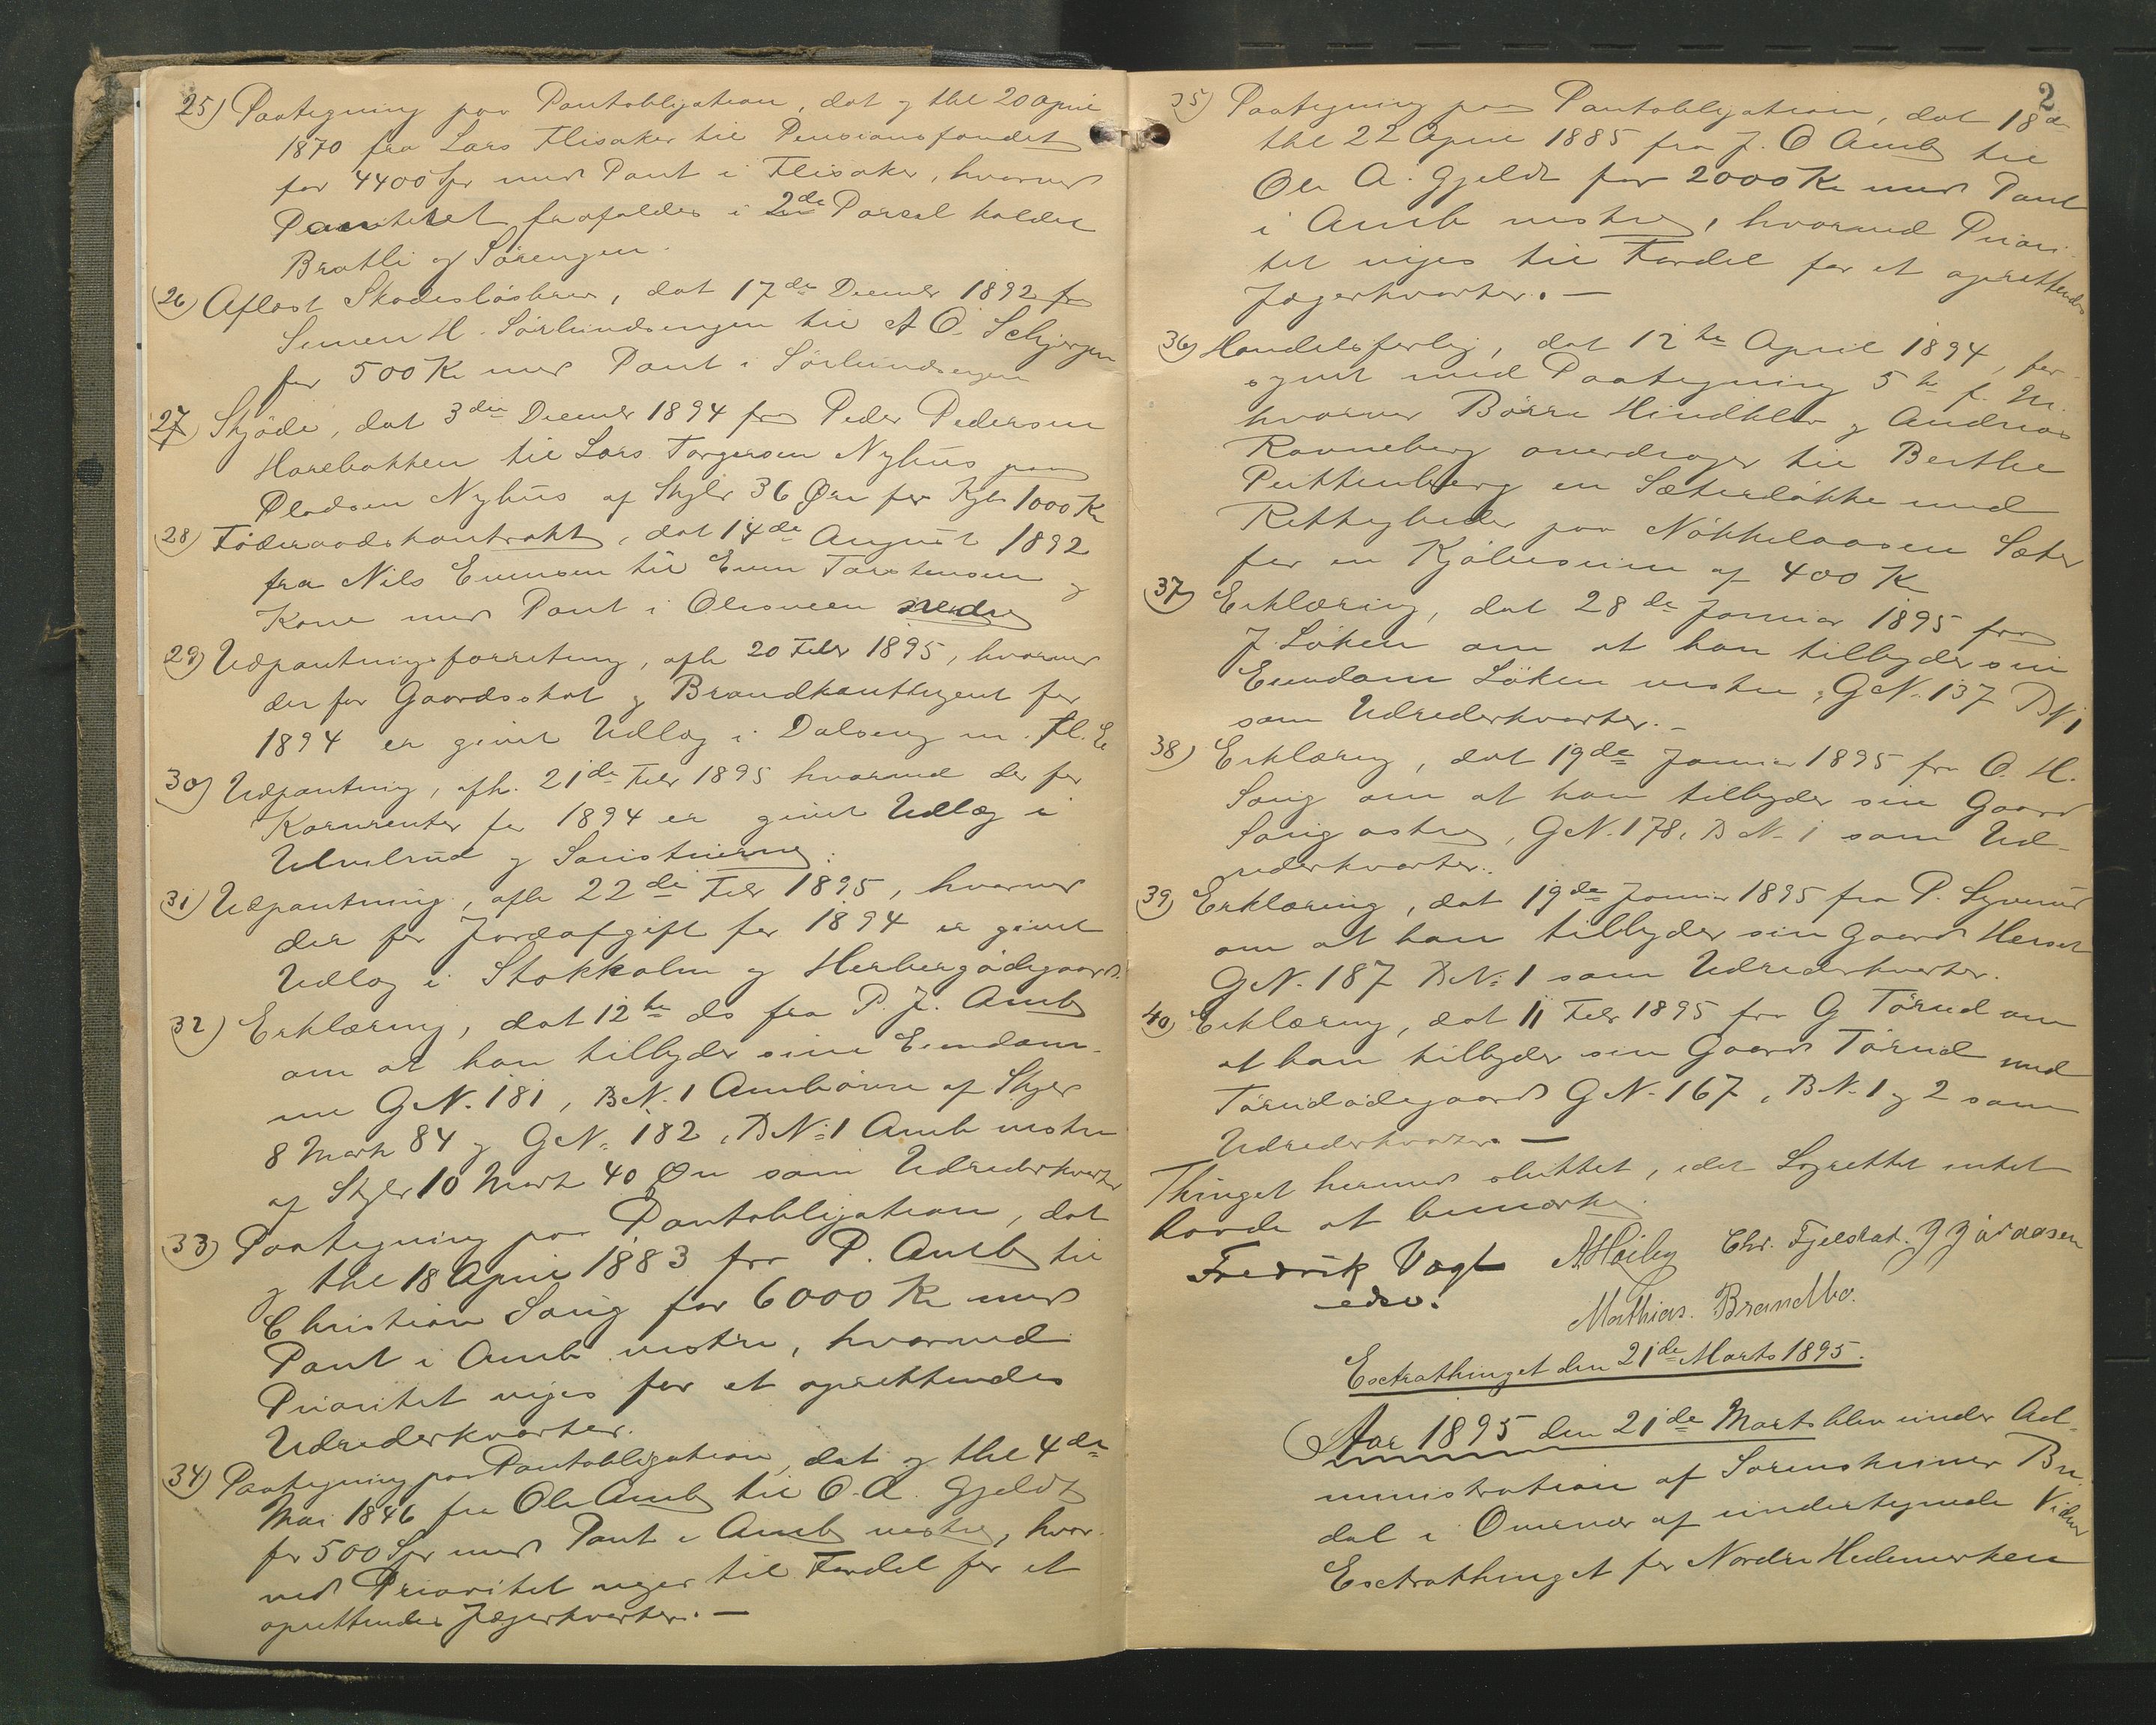 25) Paategning paa Pantobligation, dat og thl 20 April
1870 fra Lars Flisaker til Pensionsfondet
for 4400 Spr med Pant i Flisaker, hvorved
Panteret frafaldes i 2de Parsel kaldet
Bratli og Sörengen.
26) Aflöst Skadeslösbrev, dat 17de Decembr 1892 fra
Simen H. Sörlundsengen til A O. Schjergen
for 500 Kr med Pant i Sörlundsengen
27) Skjöde, dat 3die Decembr 1894 fra Peder Pedersen
Harebakken til Lars Torgersen Nyhus paa
Pladsen Nyhus af Skyld 36 Øre for Kjb 1000 Kr
28) Föderaadskontrakt, dat 14de August 1892
fra Nils Evensen til Even Torstensen og
Kone med Pant i Olesveen nedre
29) Udpantningsforretning, afh 20 Febr 1895, hvorved
der for Gaardsskat og Brandkontingent for
1894 er givet Udlæg i Dalseng m. fl. E
30) Udpantning, afh. 21de Febr 1895 hvorved der for
Kornrenter for 1894 er givet Udlæg i
Ulvelrud og
31) Udpantning, afh 22de Febr 1895, hvorved
der for Jordafgift for 1894 er givet
Udlæg i Stokholm og Herbergödegaard.
32) Erklæring, dat 12te ds fra P. J. Amb
om at han tilbyder sine Eiendom-
me GN. 181, BN. 1 Amb övre af Skyld
8 Mark 84 og GN. 182, BN: 1 Amb vestre
af Skyld 10 Mark 40 Øre som Udrederkvarter
33) Paategning paa Pantobligation, dat
og thl 18 April 1883 fra P. Amb til
Christian Saug for 6000 Kr med
Pant i Amb vestre, hvorved
Prioritet viges for et oprettendes
Udrederkvarter.
34) Paategning paa Pantobligation, dat og thl 4de
Mai 1846 fra Ole Amb til O. A. Gjeldt
for 500 Spr med Pant i Amb vestre, hvor-
ved Prioritet viger til Fordel for et
oprettendes Jægerkvarter. —
2
35) Paategning paa Pantobligation, dat 18de
thl 22 April 1885 fra J. O Amb til
Ole A. Gjeldt for 2000 Kr med Pant
i Amb vestre, hvorved Priori-
tet viges til Fordel for et oprettendes
Jægerkvarter. —
36) Handelsforlig, dat 12te April 1894, for-
synet med Paategning 5te f. M.
hvorved Börre Hindklev og Andreas
Ranneberg overdrager til Berthe
Püttenberg en Sæterlökke med
Rettigheder paa Nökkelaasen Sæter
for en Kjöbesum af 400 K
37) Erklæring, dat 28de Januar 1895 fra
J. Löken om at han tilbyder sin
Eiendom Löken vestre, GN. 137 BN 1
som Udrederkvarter. —
38) Erklæring, dat 19de Januar 1895 fra O. H.
Saug om at han tilbyder sin Gaard
Saug östre, GN. 178, BN. 1 som Ud-
rederkvarter.
39) Erklæring, dat 19de Januar 1895 fra P. Syverud
om at han tilbyder sin Gaard Herset
GN. 187 BN: 1 som Udrederkvarter.
40) Erklæring, dat 11 Febr 1895 fra G Törud om
at han tilbyder sin Gaard Törud med
Törudödegaard GN. 167, BN. 1 og 2 som
Udrederkvarter. —
Thinget hermed sluttet, idet Lagrettet intet
havde at bemærke.
Fredrik Vogt A. Höiby Chr. Fjelstad. J Jávaasen
edsv. Mathias. Brandbo.
Exctrathinget den 21de Marts 1895.
Aar 1895 den 21de Marts blev under Ad-
ministration af Sorenskriver Bre-
dal i Overvær af undertegnede Vidner
Exctrathinget for Nordre Hedemarken